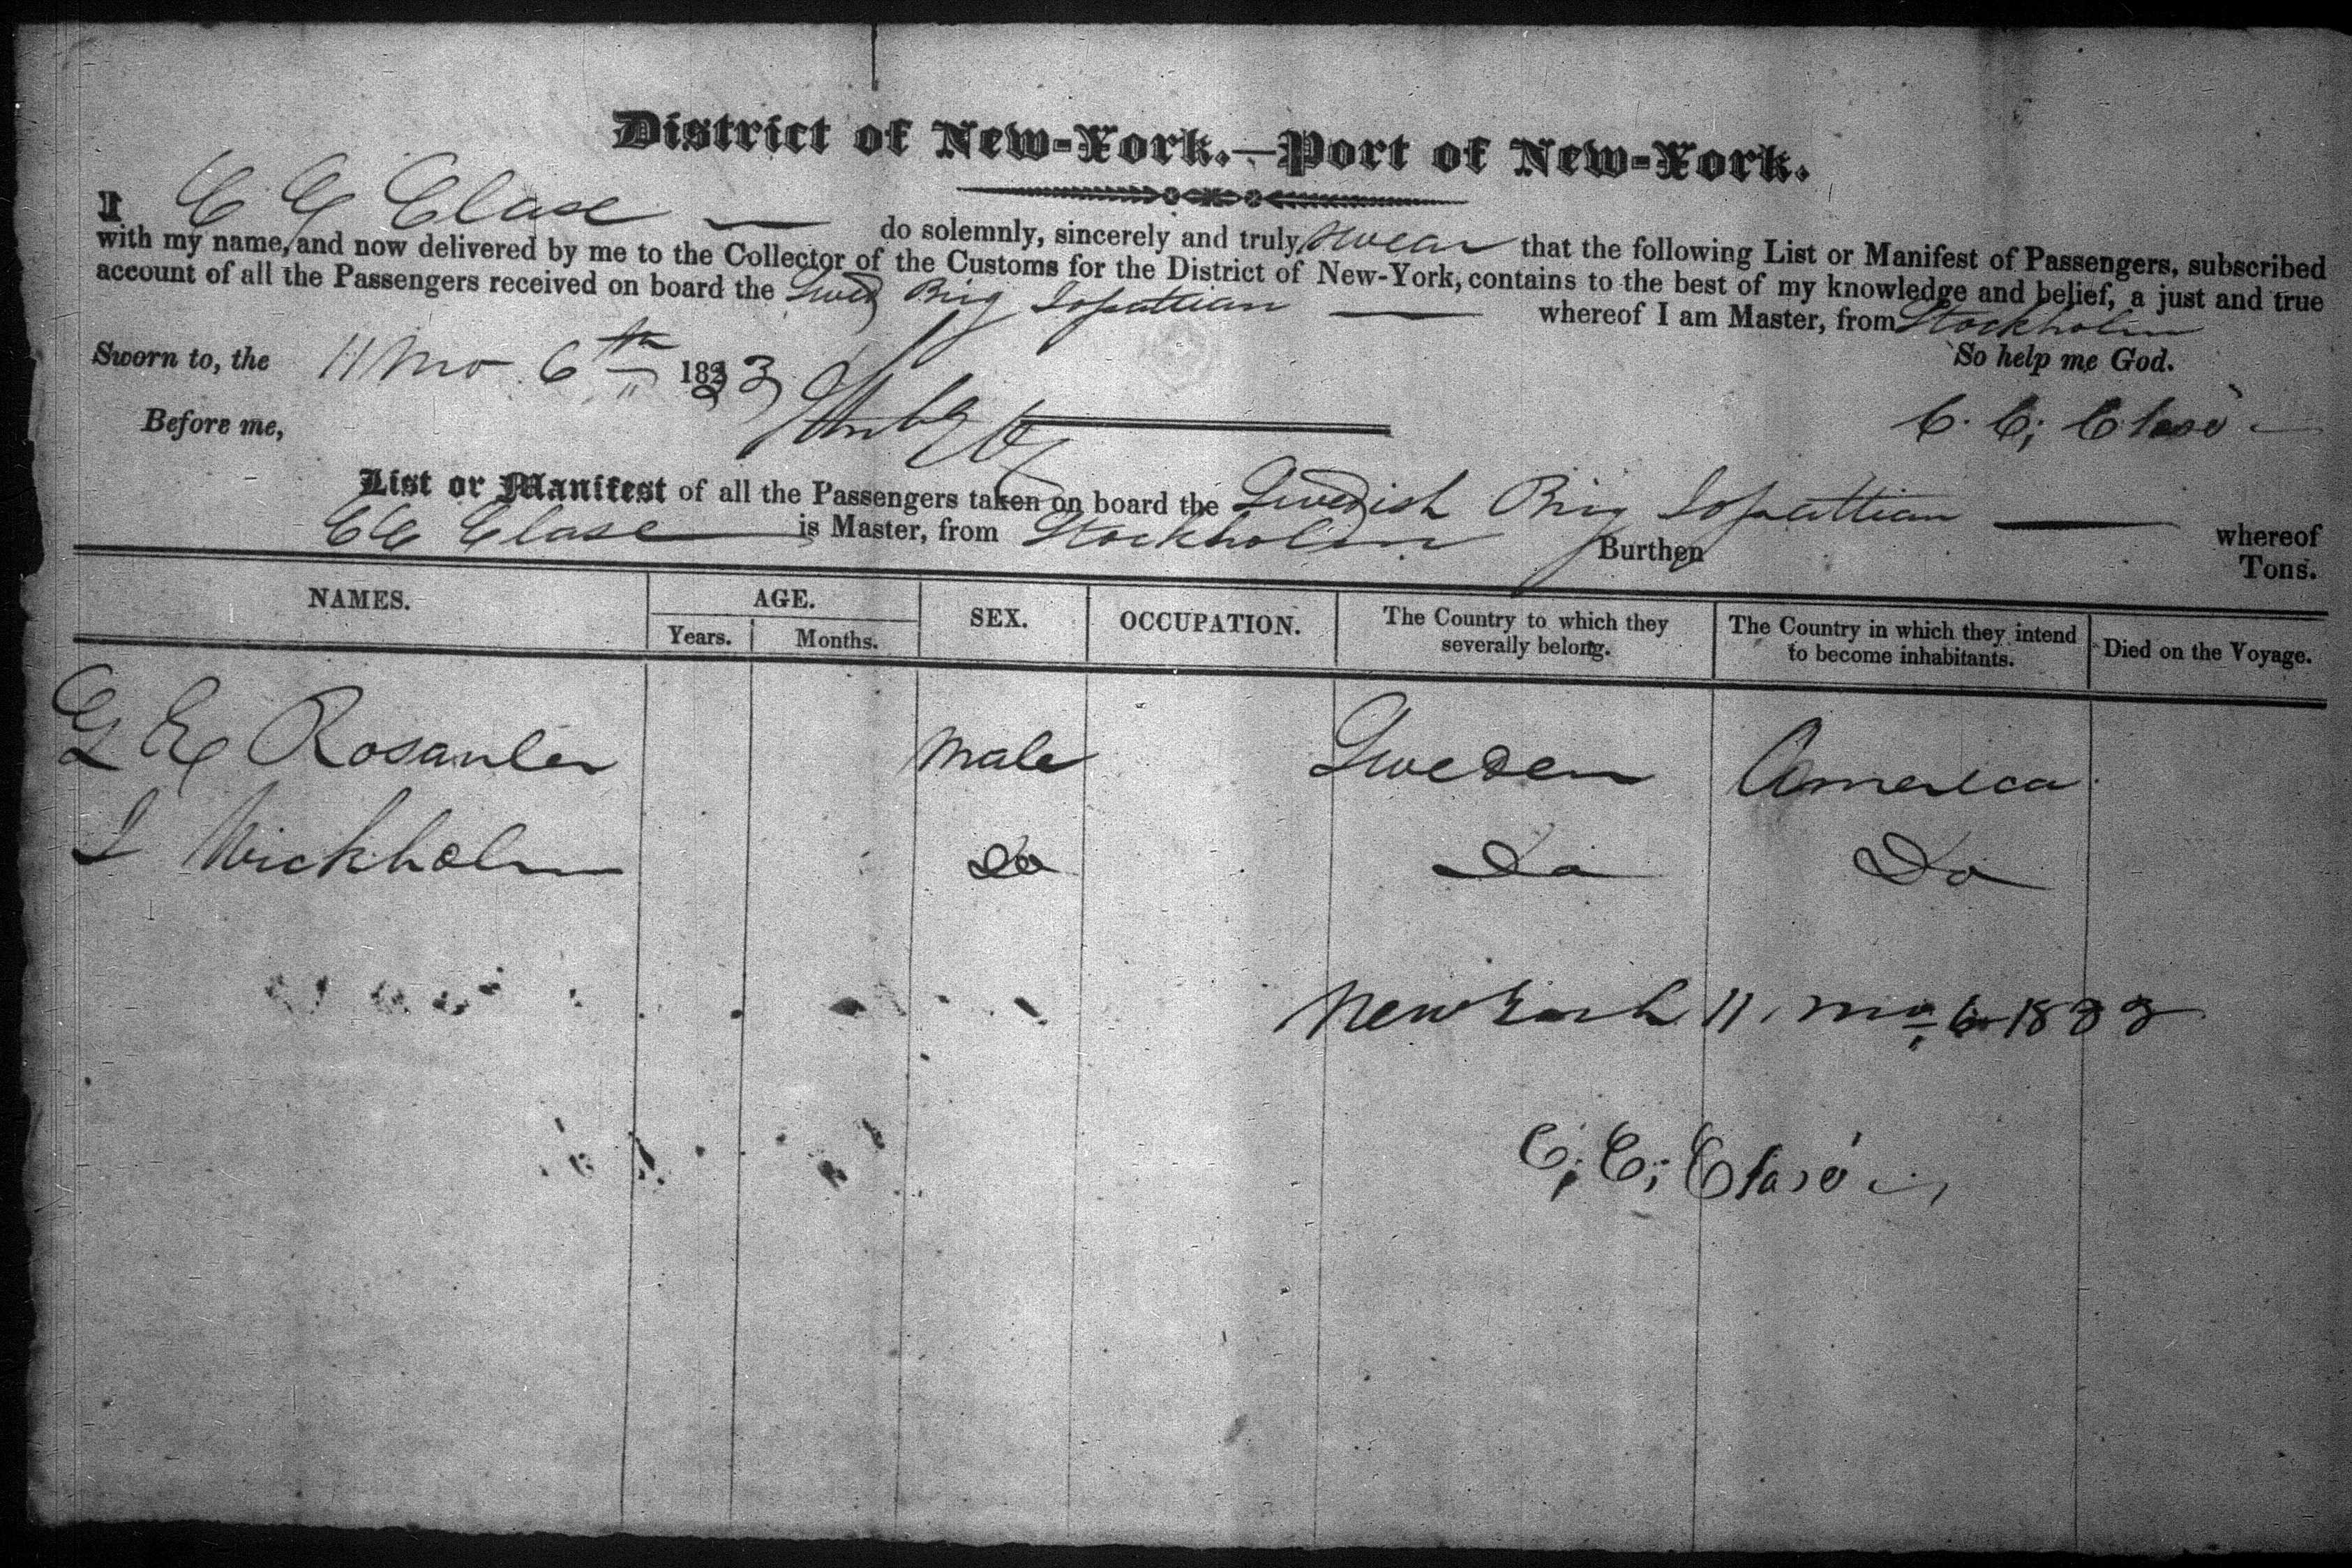 District of New-York.—Port of New-York.
I C C Clase do solemnly, sincerely and truly, swear that the following List or Manifest of Passengers, subscribed
with my name, and now delivered by me to the Collector of the Customs for the District of New-York, contains to the best of my knowledge and belief, a just and true
account of all the Passengers received on board the Swed Brig whereof I am Master, from Stockholm
So help me God.
Sworn to, the 11 mo 6th 1833
Before me,
C. C; Clasé
List or Manifest of all the Passengers taken on board the Swedish Brig whereof
C C Clase is Master, from Stockholm Burthen Tons.
NAMES. AGE. SEX. OCCUPATION. The Country to which they severally belong. The Country in which they intend to become inhabitants. Died on the Voyage.
Years. Months.
G E Male Sweden America
Do Do Do
New York 11. mo 6 1833
C; C; Clasé